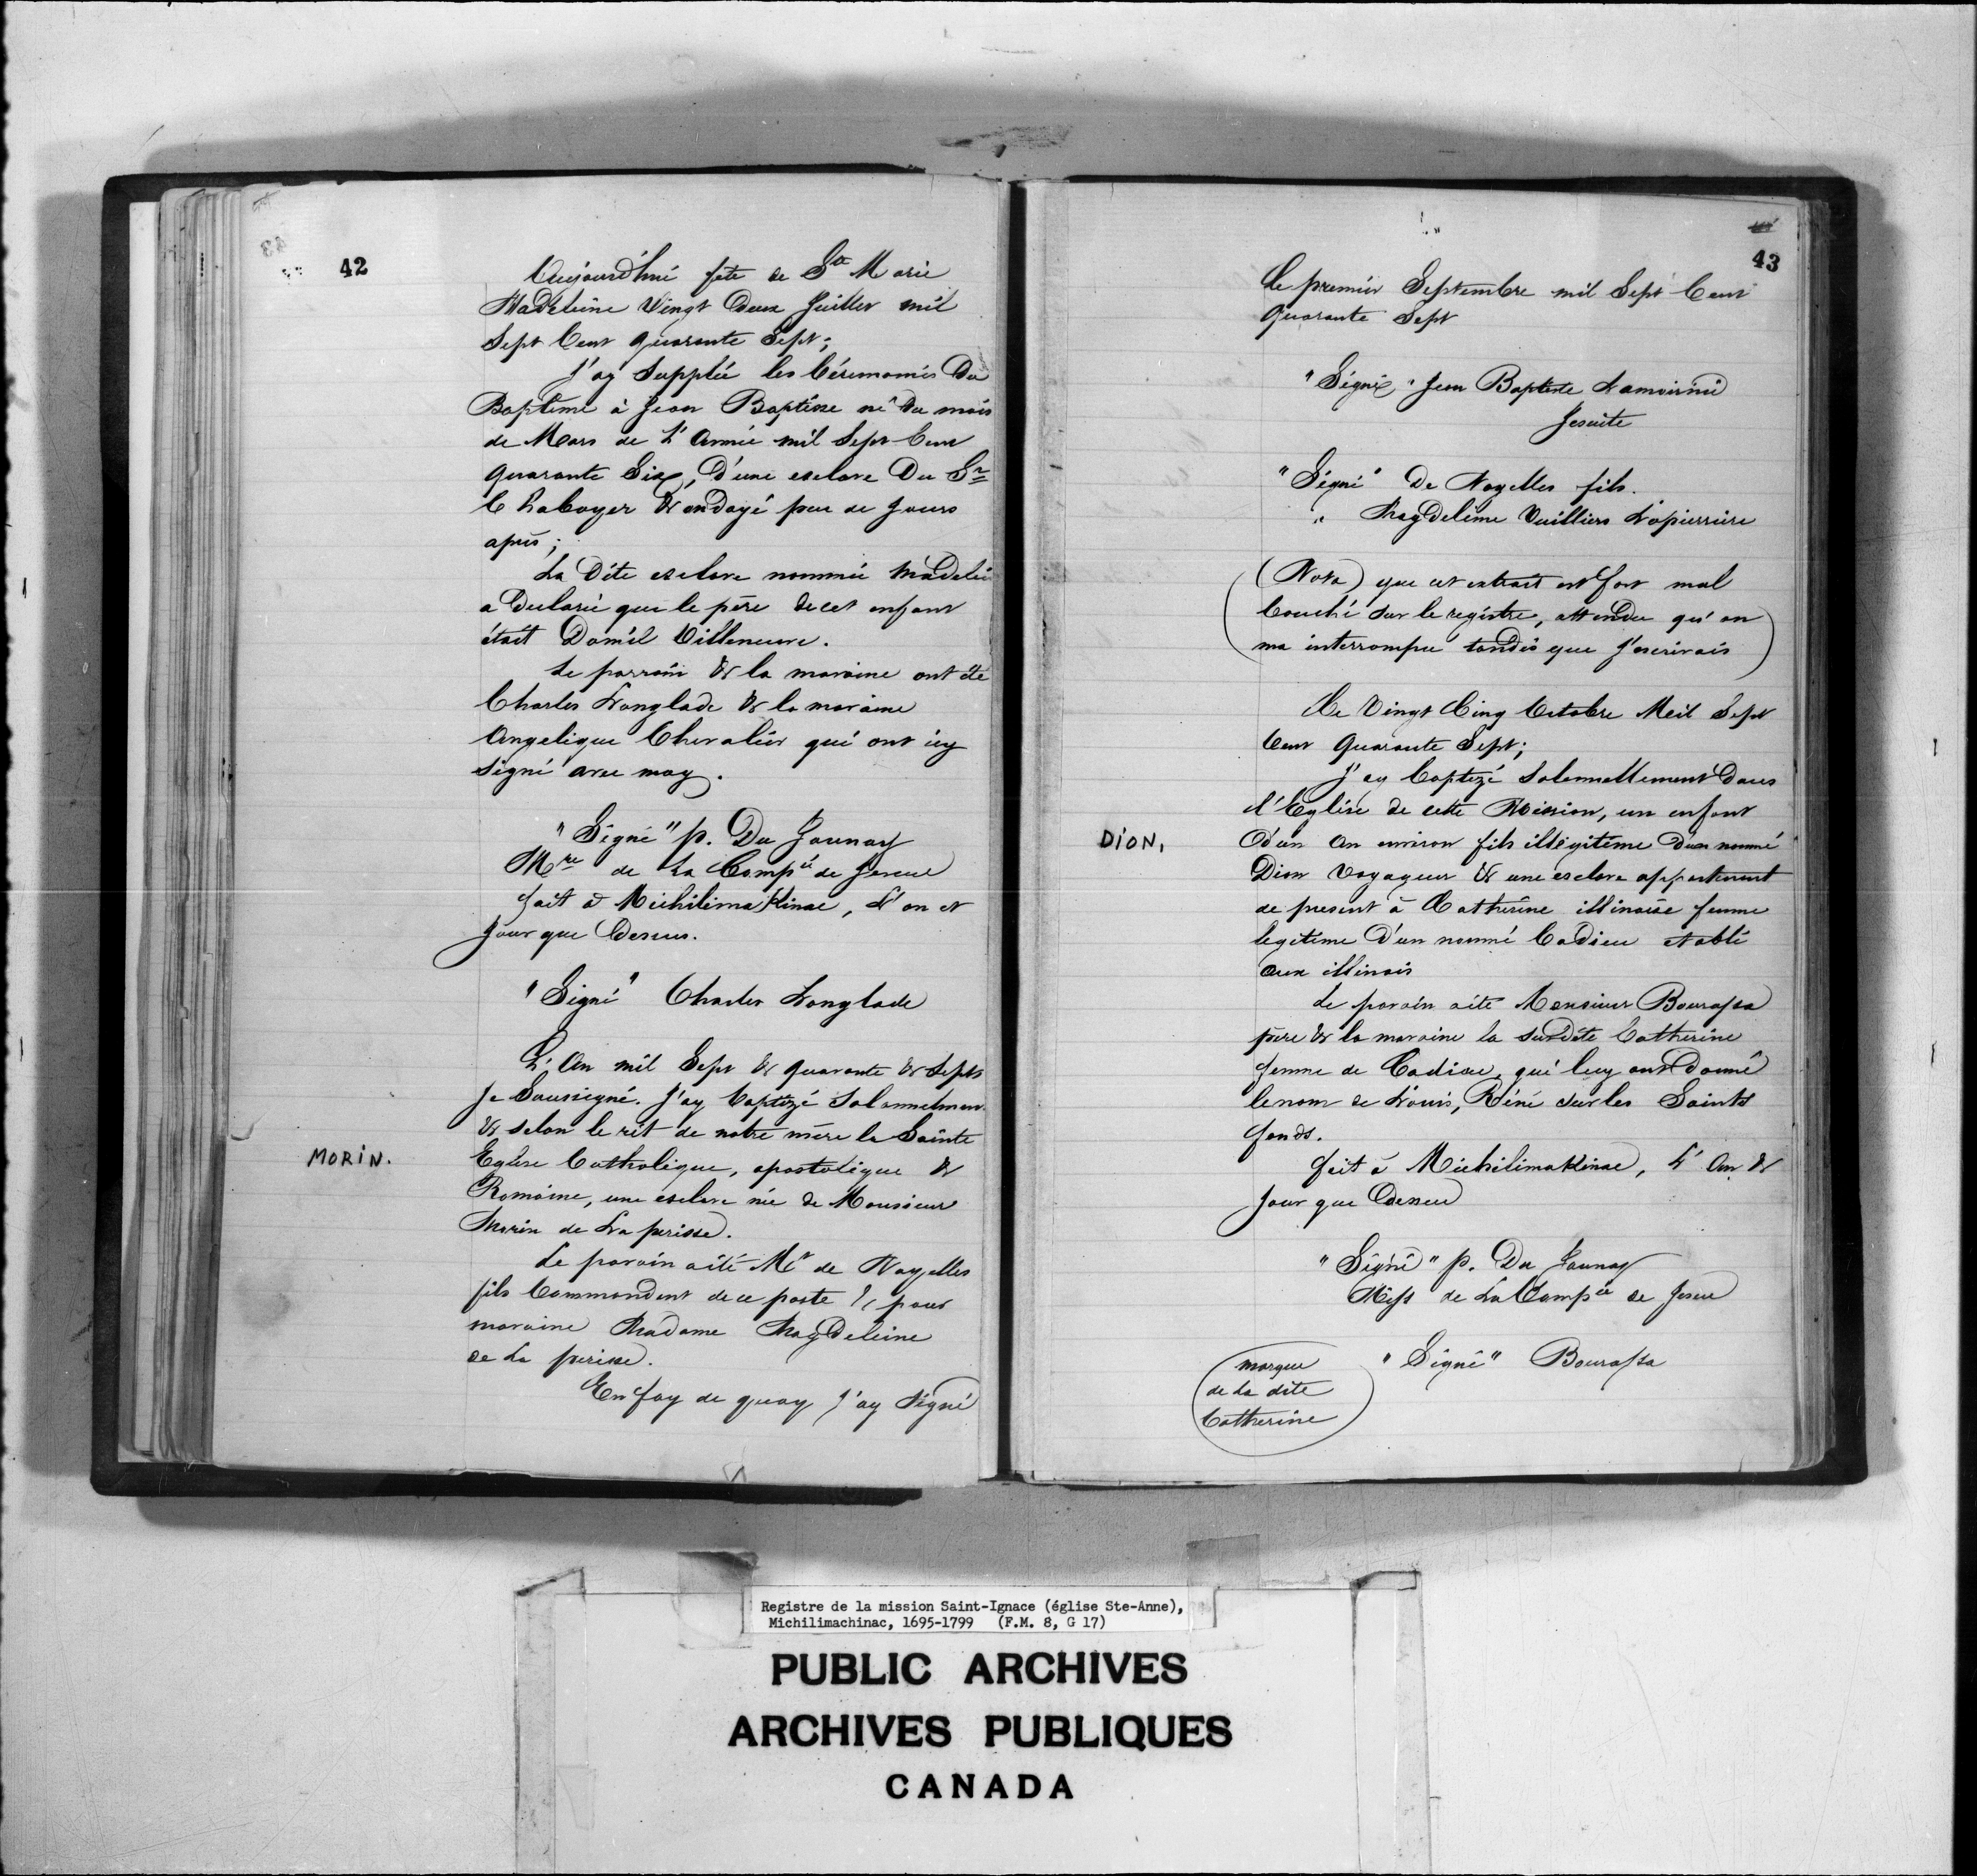 42
Aujourd'hui fete de Ste Marie
Madeleine Vingt Deux Juillet mil
Sept Cent quarante Sept;
J'ay Supplée les Cérémonies Du
Baptême à Jean Baptiste né Du mois
de Mars de L'Année mil Sept Cent
quarante Six, D'une esclave Du Sr
Chaboyer & ondoyé peu de Jours
après;
La Dite esclave nommée Madelei
a Declaré que le père de cet enfant
était Daniel Villeneuve.
Le parrain & la maraine ont été
Charles Langlade & la maraine
Angelique Chevalier qui ont icy
Signé avec moy.
"Signé" p. Du Jaunay
Mre de La Compie de Jesus
fait à Michilimakinac, L'an et
Jour que Dessus.
"Signé" Charles Langlade
MORIN.
L'An mil Sept & quarante & Septs
Je Soussigné. J'ay baptizé Solannelmen
& selon le rit de notre mère la Sainte
Eglise Catholique, apostolique &
Romaine, une esclave née de Monsieur
Morin de La perisse.
Le parain aité Mr de Noyelles
fils Commandant de ce poste & pour
maraine Madame Magdeleine
de La perisse.
En foy de quoy J'ay Signé
43
Le premier Septembre mil Sept Cent
quarante Sept
"Signé" Jean Baptiste Lamorinie
Jesuite
"Signé" De Noyelles fils.
" Magdeleine Vuilliers Lapierriere
(Nota) que cet extrait est fort mal
Couché Sur le registre, attendu qu'on
ma interrompu tandis que J'escrivais
Le Vingt Cinq Octobre Mil Sept
Cent Quarante Sept;
J'ay baptizé Solennellement Dans
l'Eglise de cette Mission, un enfant
DION,
D'un An environ fils illégitime D'un nommé
Dion Voyageur & une esclave appartenant
de present à Catherine illinoise femme
legitime D'un nommé Cadieu etabli
aux illinois
Le parain aité Monsieur Bourassa
père & la maraine la susdite Catherine
femme de Cadieu, qui luy ont Donné
le nom de Louis, Réné sur les Saints
fonds.
fait à Michilimakinac, L'An &
Jour que Dessus
"Signé" p. Du Jaunay
Miss de La Compie de Jesus
"Signé" Bourassa
marque
de La dite
Catherine
Registre de la mission Saint-Ignace (église Ste-Anne),
Michilimachinac, 1695-1799 (F.M. 8, G 17)
PUBLIC ARCHIVES
ARCHIVES PUBLIQUES
CANADA